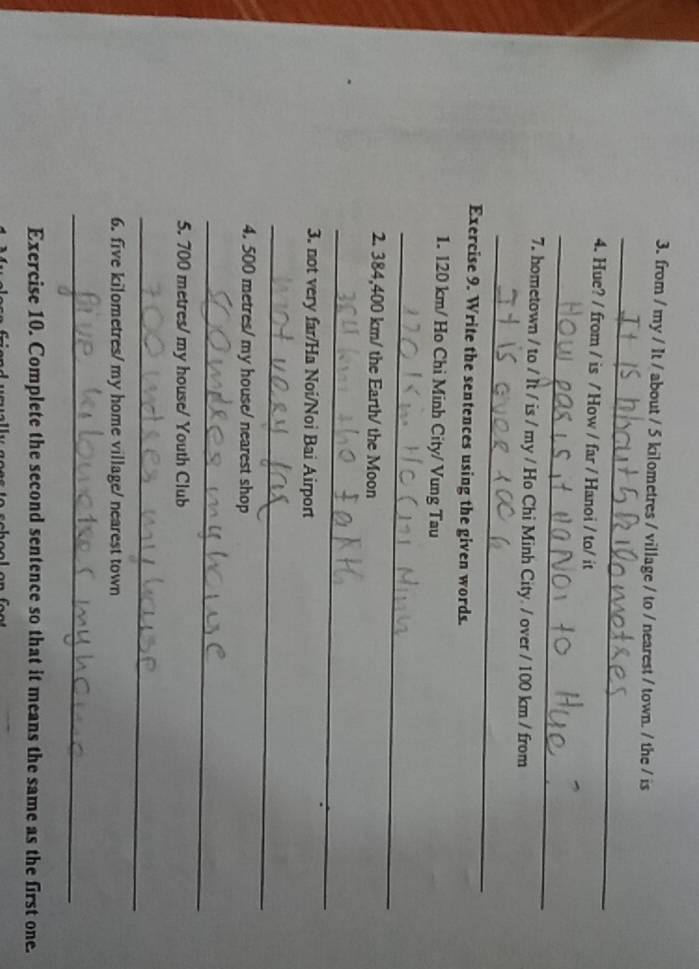 3. from / my / It / about / 5 kilometres / village / to / nearest / town. / the / is
It is about 5 kilomotres
4. Hue? / from / is / How / far / Hanoi / to/ it
How far is it HaNoi to Hue?
7. hometown / to / It / is / my / Ho Chi Minh City. / over / 100 km / from
It is over 100
Exercise 9. Write the sentences using the given words.
1. 120 km/ Ho Chi Minh City/ Vung Tau
120 km Ho Minh
2. 384,400 km/ the Earth/ the Moon
km the EaRTH
3. not very far/Ha Noi/Noi Bai Airport
not very far
4. 500 metres/ my house/ nearest shop
my house
5. 700 metres/ my house/ Youth Club
700 metres my house
6. five kilometres/ my home village/ nearest town
five kilometres my home
Exercise 10. Complete the second sentence so that it means the same as the first one.
1. My close friend usually goes to school on foot